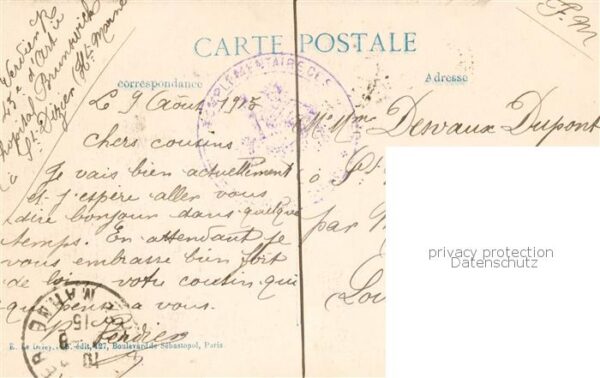 Verdier R
45e d'Artie
hôpital Brunswich
St Dizier Hte Marne
F. M
CARTE POSTALE
correspondance
Adresse
COMPLEMENTAIRE DES
Le 9 Août 1915
chers cousins
Je vais bien actuellement
et j'espère aller vous
dire bonjour dans quelque
temps. En attendant je
vous embrasse bien fort
de loin votre cousin qui
qui pense a vous.
R Verdier
Mr Mme Devaux Dupont
à St
par
Lou
MARNE
15
privacy protection
Datenschutz
édit, 127, Boulevard de Sébastopol, Paris.